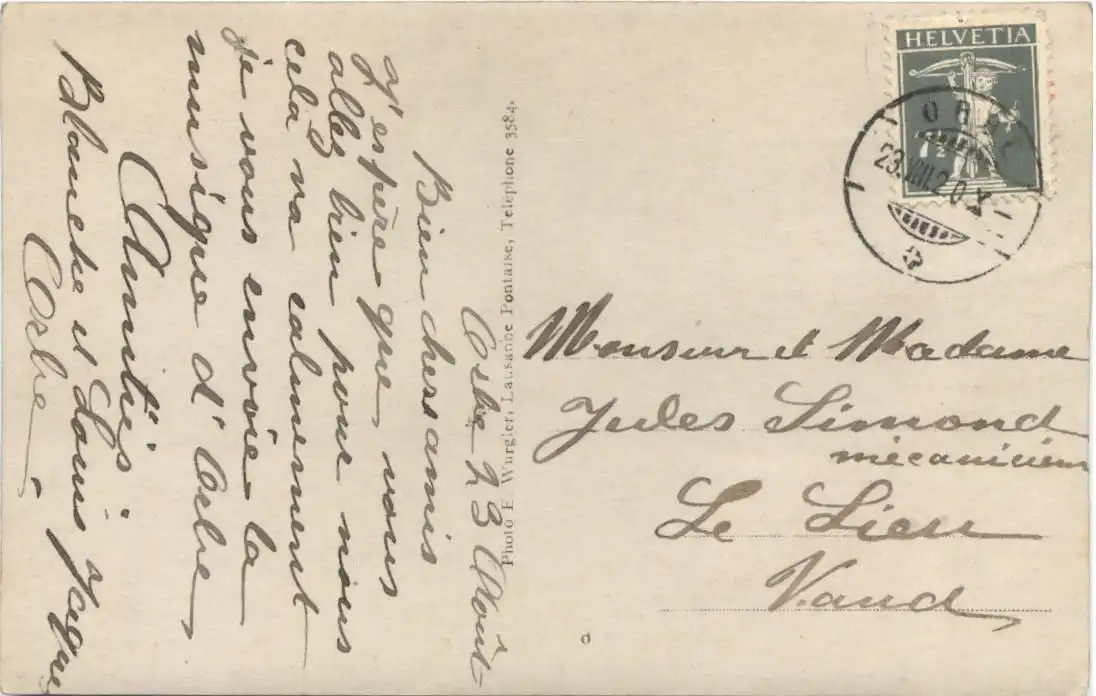 Orbe 23 Août
Bien chers amis
J'espère que vous
allez bien pour nous
cela va calmement
je vous envoie la
musique d'Orbe,
Amitiés
Blanche et Louis
Orbe.
Photo E. Wurgler, Lausanne Pontaise, Téléphone 3584.
HELVETIA
7½
ORBE
23.VIII.20.X
Monsieur et Madame
Jules Simond
mécanicien
Le Lieu
Vaud